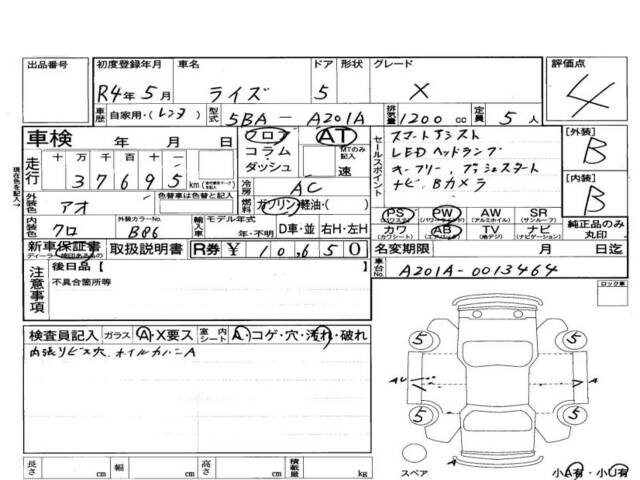 出品番号 初度登録年月 車名 ドア 形状 グレード 評価点
R4年 5月 ライズ 5 X 4
車歴 自家用・(レンタ) 型式 5BA－A201A 排気量 1200 cc 定員 5人
車検 年 月 日 フロア AT セールスポイント スマートアシスト [外装]
現在色を記入→ 走行 十 万 千 百 十 コラム MTのみ記入 LEDヘッドランプ B
3 7 6 9 5 km ダッシュ 速 キーフリー、プッシュスタート [内装]
冷房 AC ナビ、Bカメラ B
外装色 アオ 色替車は色替と記入 燃料 ガソリン・軽油・( ) PS (パワステ) PW (パワーウインドウ) AW (アルミホイル) SR (サンルーフ) 純正品のみ丸印
内装色 クロ 外装カラーNo. B86 輸入車 モデル年式 年・不明 D車・並 右H・左H カワ (カワシート) AB (エアバッグ) TV (地デジ) ナビ (ナビゲーション)
新車保証書 取扱説明書 R券 ¥ 10,650 名変期限 月 日迄
注意事項 後日品【 車台No. A201A-0013464
不具合箇所等 ロック車
検査員記入 ガラス A・X要ス 室内シート A・コゲ・穴・汚れ・破れ
内張りビス穴、オイルカバーA
5 5
A A
5 5
スペア A 小A有・小U有
長さ cm 幅 cm 高さ cm 積載量 kg